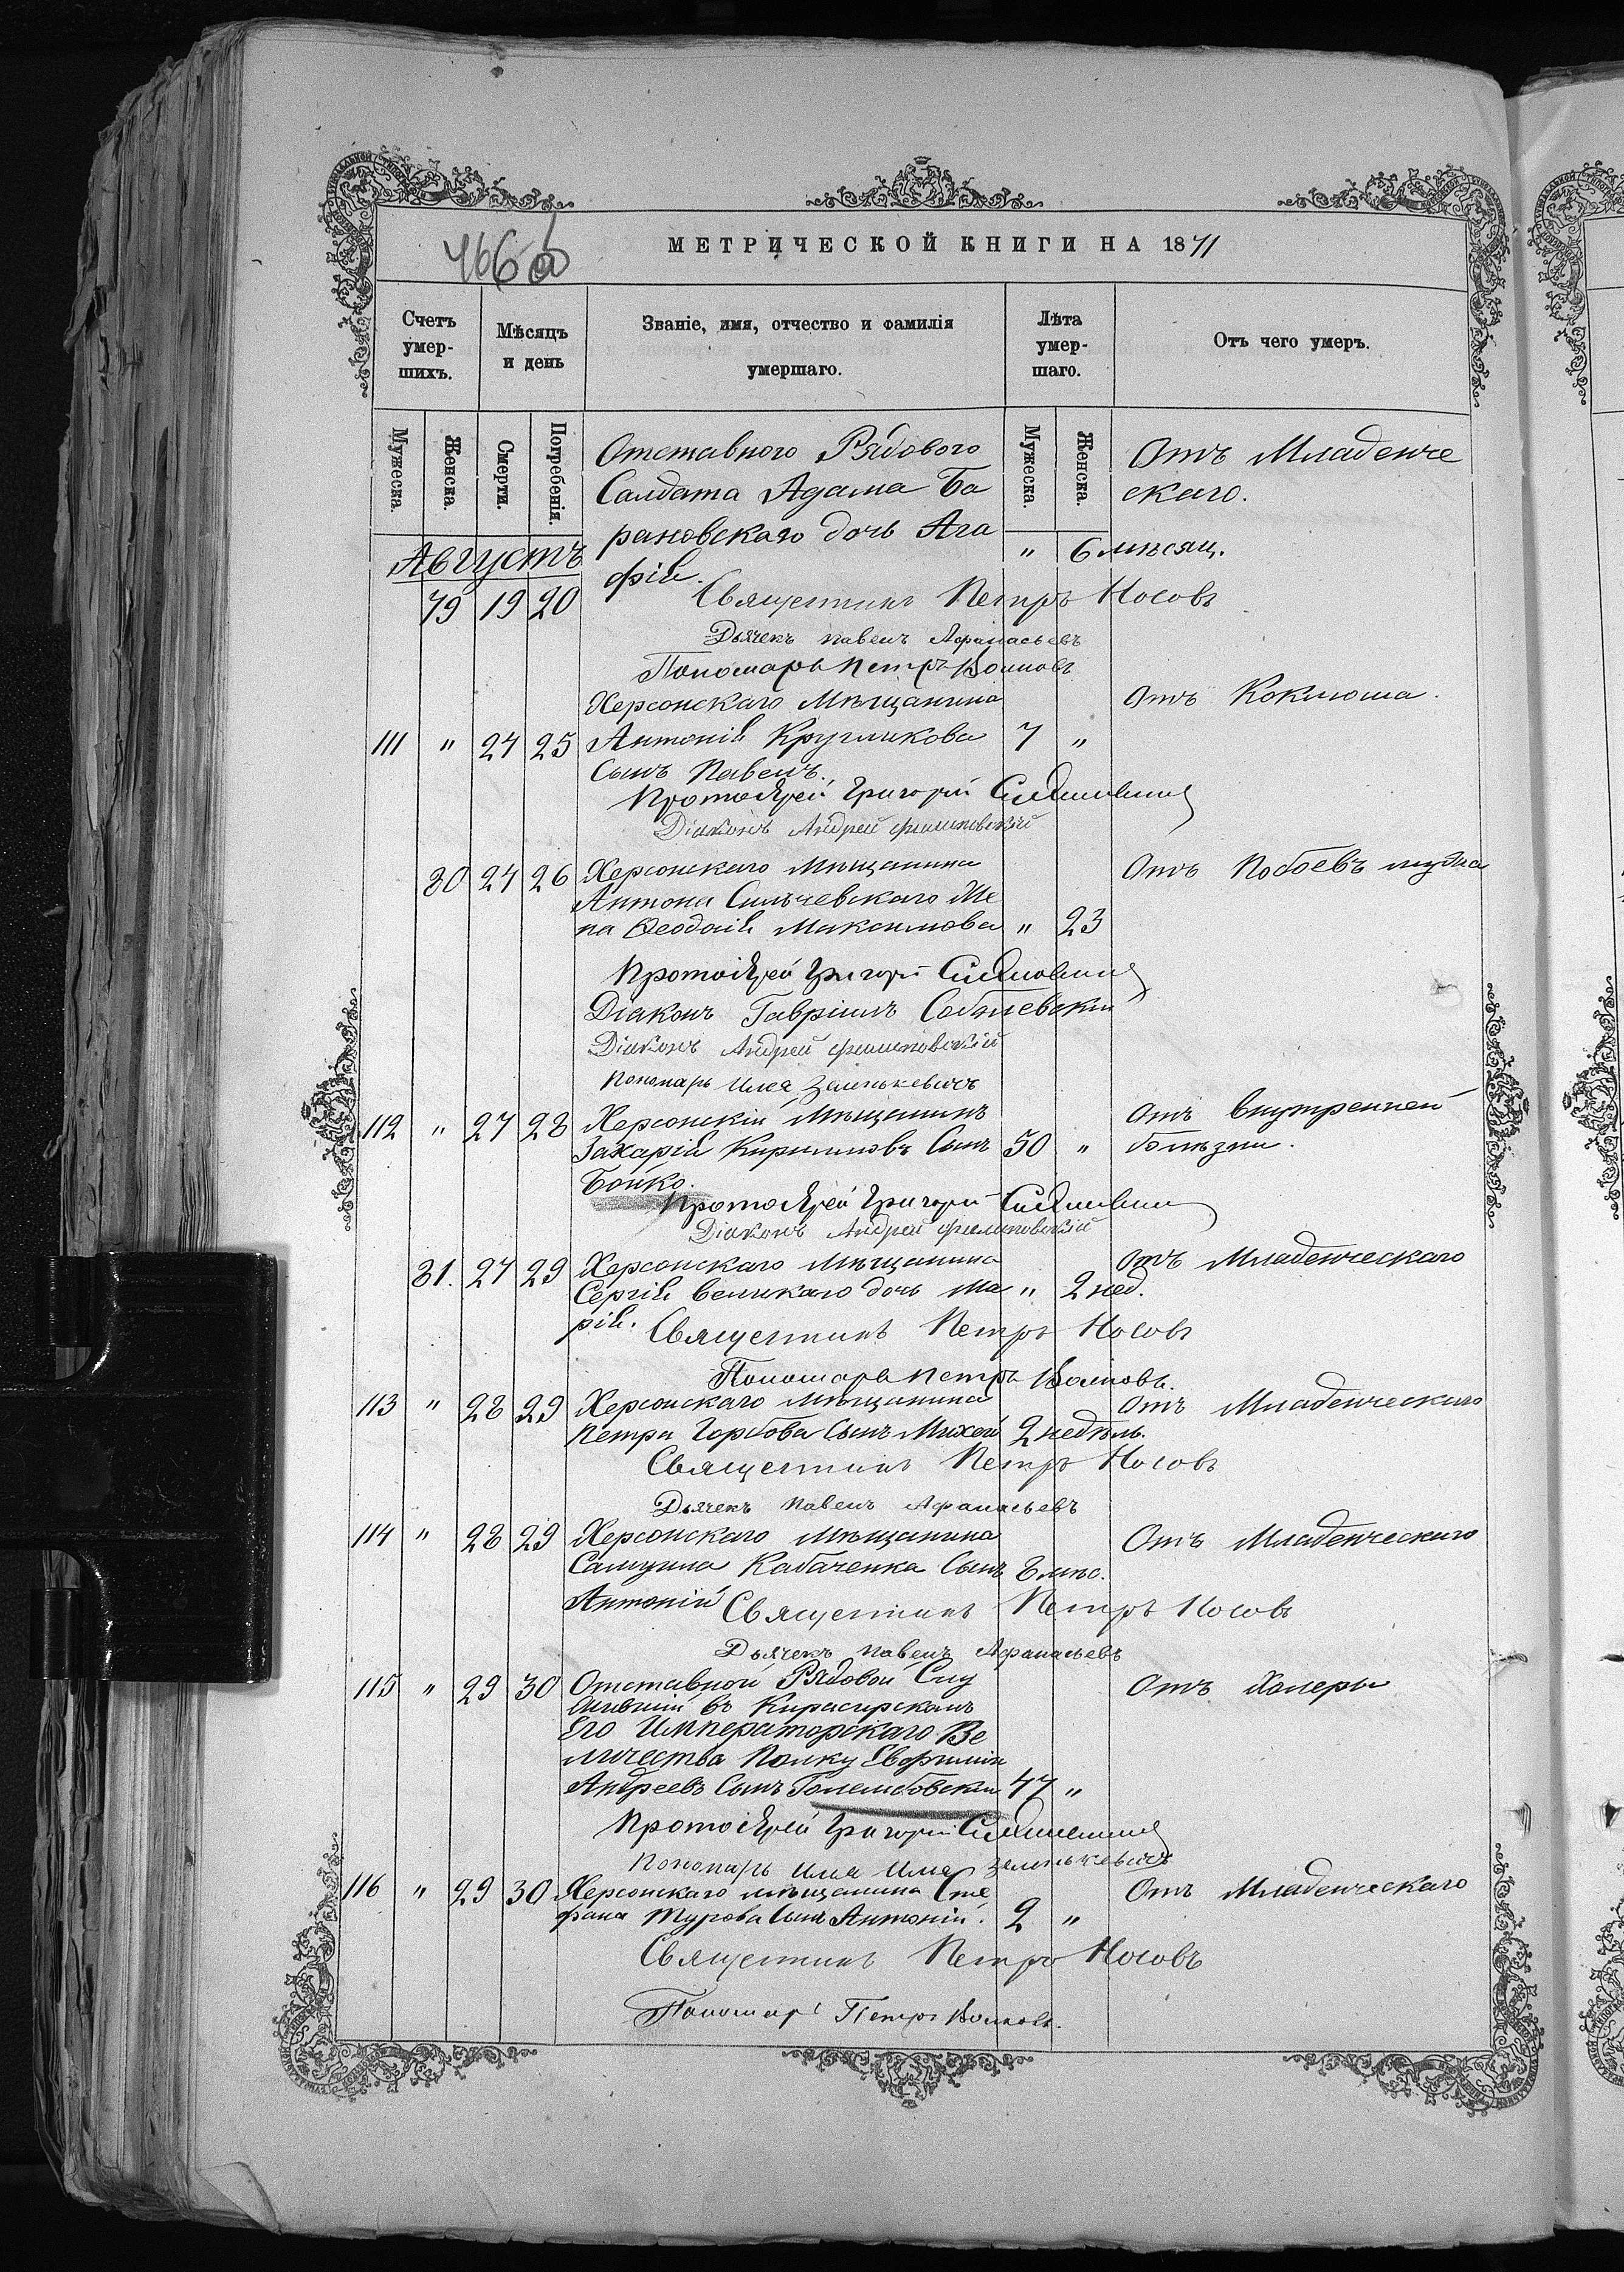 466 об
МЕТРИЧЕСКОЙ КНИГИ НА 1871
Счетъ умер-шихъ.
Мѣсяцъ и день
Званіе, имя, отчество и фамилія умершаго.
Лѣта умер-шаго.
Отъ чего умеръ.
Мужеска.
Женска.
Смерти.
Погребенія.
Мужеска.
Женска.
Отставного Рядового Отъ Младенче
Салдата Адама Ба скаго.
рановскаго дочь Ага " 6 мѣсяц.
Августъ
фія.
79 19 20
Священникъ Петръ Носовъ
Дьячекъ Павелъ Афанасьевъ
Пономарь Петръ Воиновъ
Херсонскаго Мѣщанина Отъ Коклюша.
111 " 24 25 Антонія Кругликова 7 "
Сынъ Павелъ.
Протоіерей Григорій
Діаконъ Андрей
80 24 26 Херсонскаго Мѣщанина Отъ Побоевъ мужа
Антона Сильчевскаго Же
на Ѳеодосія Максимова " 23
Протоіерей Григорій
Діаконъ Гавріилъ
Діаконъ Андрей
Пономарь Илья Зенькевичъ
112 " 27 28 Херсонскій Мѣщанинъ Отъ внутренней
Захарія Кирилловъ Сынъ 50 " болѣзни.
Бойко.
Протоіерей Григорій
Діаконъ Андрей
81. 27 29 Херсонскаго Мѣщанина Отъ Младенческаго
Сергія Великаго дочь Ма " 2 нед.
рія.
Священникъ Петръ Носовъ
Пономарь Петръ Воиновъ.
113 " 28 29 Херсонскаго Мѣщанина Отъ Младенческаго
Петра Горбова Сынъ 2 недѣль.
Священникъ Петръ Носовъ
Дьячекъ Павелъ Афанасьевъ
114 " 28 29 Херсонскаго Мѣщанина Отъ Младенческаго
Самуила Кабаченка Сынъ 8 мѣс.
Антоній
Священникъ Петръ Носовъ
Дьячекъ Павелъ Афанасьевъ
115 " 29 30 Отставной Рядовой Слу Отъ Холеры
жившій въ Кирасирскомъ
Его Императорскаго Ве
личества Полку Евфимій
Андреевъ Сынъ Голембовскій 47 "
Протоіерей Григорій
Пономарь Илья Илья Зенькевичъ
116 " 29 30 Херсонскаго мѣщанина Сте Отъ Младенческаго
фана Турова Сынъ Антоній. 2 "
Священникъ Петръ Носовъ
Пономарь Петръ Воиновъ.